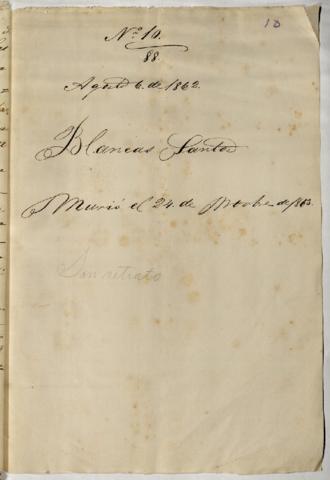 10
Nº 10.
88.
Agosto 6. de 1862.
Blancas Santos
Murió el 24 de Novbre de 1863.
Son retrato